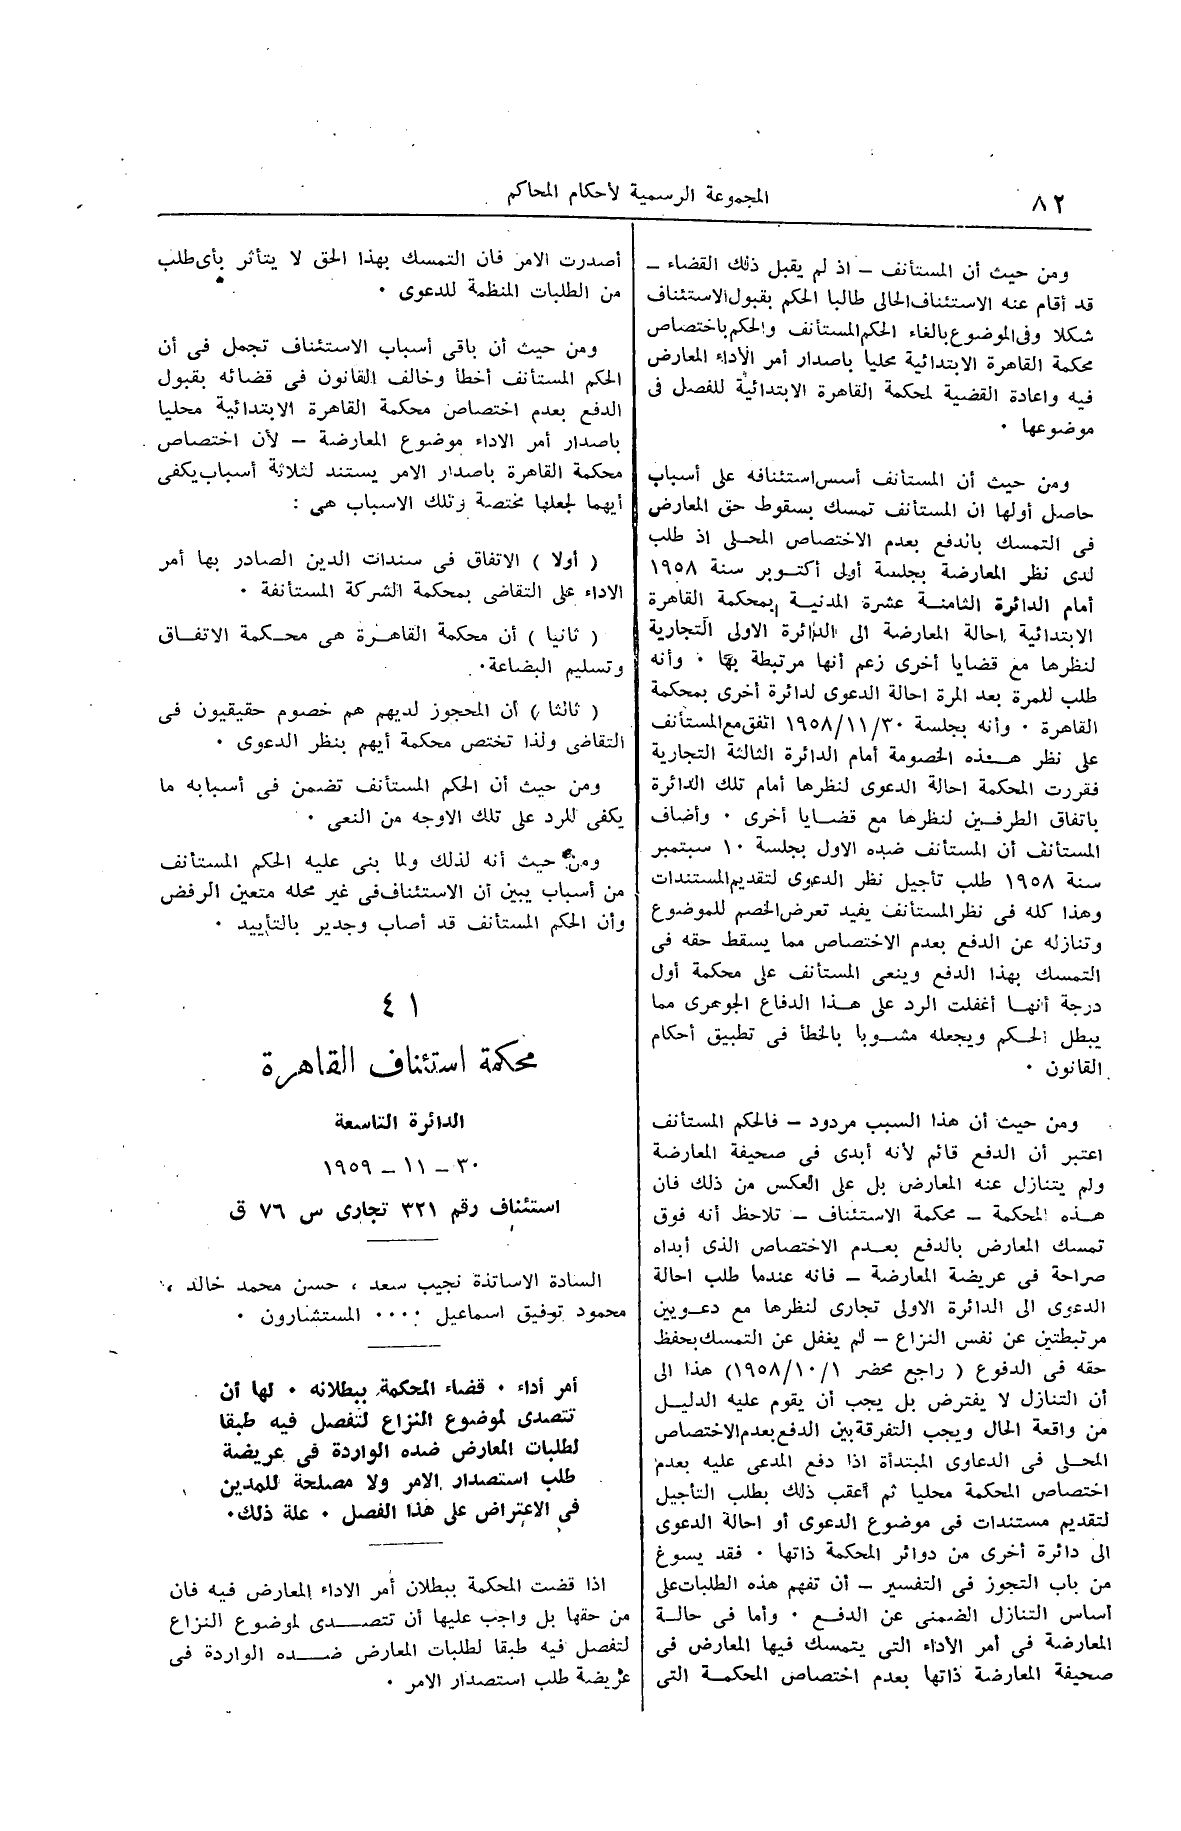 ٨٢
المجموعة الرسمية لأحكام المحاكم
ومن حيث أن المستأنف – اذ لم يقبل ذلك القضاء –
قد أقام عنه الاستئناف الحالى طالبا الحكم بقبول الاستئناف
شكلا وفى الموضوع بالغاء الحكم المستأنف والحكم باختصاص
محكمة القاهرة الابتدائية محليا باصدار أمر الأداء المعارض
فيه واعادة القضية لمحكمة القاهرة الابتدائية للفصل فى
موضوعها ٠
ومن حيث أن المستأنف أسس استئنافه على أسباب
حاصل أولها ان المستأنف تمسك بسقوط حق المعارض
فى التمسك بالدفع بعدم الاختصاص المحـلى اذ طلب
لدى نظر المعارضة بجلسة أولى أكتـوبر سنة ١٩٥٨
أمام الدائرة الثامنـة عشرة المدنيـة بمحكمة القاهرة
الابتدائية احالة المعارضة الى الدائرة الاولى التجارية
لنظرها مع قضايا أخرى زعم أنها مرتبطة بها ٠ وأنه
طلب للمرة بعد المرة احالة الدعوى لدائرة أخرى بمحكمة
القاهرة ٠ وأنه بجلسة ١٩٥٨/١١/٣٠ اتفق مع المستأنف
على نظر هـــذه الخصومة أمام الدائرة الثالثة التجارية
فقررت المحكمة احالة الدعوى لنظرها أمام تلك الدائرة
باتفاق الطرفـين لنظرها مع قضـايا أخرى ٠ وأضاف
المستأنف أن المستأنف ضده الاول بجلسة ١٠ سبتمبر
سنة ١٩٥٨ طلب تأجيل نظر الدعوى لتقديم المستندات
وهذا كله فى نظر المستأنف يفيد تعرض الخصم للموضوع
وتنازله عن الدفع بعدم الاختصاص مما يسقط حقه فى
التمسك بهذا الدفع وينعى المستأنف على محكمة أول
درجة أنهـا أغفلت الرد على هـذا الدفاع الجوهرى مما
يبطل الحـكم ويجعله مشـوبا بالخطأ فى تطبيق أحكام
القانون ٠
ومن حيث أن هذا السبب مردود – فالحكم المستأنف
اعتبر أن الدفع قائم لأنه أبدى فى صحيفة المعارضة
ولم يتنازل عنه المعارض بل على العكس من ذلك فان
هـذه المحكمة – محكمة الاستئناف – تلاحظ أنه فوق
تمسك المعارض بالدفع بعـدم الاختصاص الذى أبداه
صراحة فى عريضة المعارضة – فانه عندما طلب احالة
الدعوى الى الدائرة الاولى تجارى لنظرها مع دعـويين
مرتبطتين عن نفس النزاع – لم يغفل عن التمسك بحفظ
حقه فى الدفوع ( راجع محضر ١٩٥٨/١٠/١) هذا الى
أن التنازل لا يفترض بل يجب أن يقوم عليه الدليـل
من واقعة الحال ويجب التفرقة بين الدفع بعدم الاختصاص
المحـلى فى الدعاوى المبتدأة اذا دفع المدعى عليه بعدم
اختصاص المحكمة محليا ثم أعقب ذلك بطلب التأجيل
لتقديم مستندات فى موضوع الدعوى أو احالة الدعوى
الى دائرة أخرى من دوائر المحكمة ذاتها ٠ فقد يسوغ
من باب التجوز فى التفسير – أن تفهم هذه الطلبات على
أساس التنازل الضمنى عن الدفـع ٠ وأما فى حالـة
المعارضة فى أمر الأداء التى يتمسك فيها المعارض فى
صحيفة المعارضة ذاتها بعدم اختصاص المحكمـة التى
أصدرت الامر فان التمسك بهذا الحق لا يتأثر بأى طلب
من الطلبات المنظمة للدعوى ٠
ومن حيث أن باقى أسباب الاستئناف تجمل فى أن
الحكم المستأنف أخطأ وخالف القانون فى قضائه بقبول
الدفع بعدم اختصاص محكمة القاهرة الابتدائية محليا
باصدار أمر الاداء موضوع المعارضة – لأن اختصاص
محكمة القاهرة باصدار الامر يستند لثلاثة أسباب يكفى
أيهما لجعلها مختصة وتلك الاسباب هى :
( أولا ) الاتفاق فى سندات الدين الصادر بها أمر
الاداء على التقاضى بمحكمة الشركة المستأنفة ٠
( ثانيا ) أن محكمة القاهـرة هى محـكمة الاتفـاق
وتسليم البضاعة٠
( ثالثا ) أن المحجوز لديهم هم خصوم حقيقيون فى
التقاضى ولذا تختص محكمة أيهم بنظر الدعوى ٠
ومن حيث أن الحكم المستأنف تضمن فى أسبابه ما
يكفى للرد على تلك الاوجه من النعى ٠
ومن حيث أنه لذلك ولما بنى عليه الحكم المستأنف
من أسباب يبين أن الاستئناف فى غير محله متعين الرفض
وأن الحكم المستأنف قد أصاب وجدير بالتأييد ٠
٤١
محكمة استئناف القاهرة
الدائرة التاسعة
٣٠ – ١١ – ١٩٥٩
استئناف رقم ٣٢١ تجارى س ٧٦ ق
السادة الاساتذة نجيب سعد ، حسن محمد خالد ،
محمود توفيق اسماعيل ٠٠٠٠ المستشارون ٠
أمر أداء ٠ قضاء المحكمة ببطلانه ٠ لها أن
تتصدى لموضوع النزاع لتفصل فيه طبقا
لطلبات المعارض ضده الواردة فى عريضة
طلب استصدار الامر ولا مصلحة للمدين
فى الاعتراض على هذا الفصل ٠ علة ذلك٠
اذا قضت المحكمة ببطلان أمر الاداء المعارض فيه فان
من حقها بل واجب عليها أن تتصـــدى لموضوع النزاع
لتفصل فيه طبقا لطلبات المعارض ضـــده الواردة فى
عريضة طلب استصدار الامر ٠